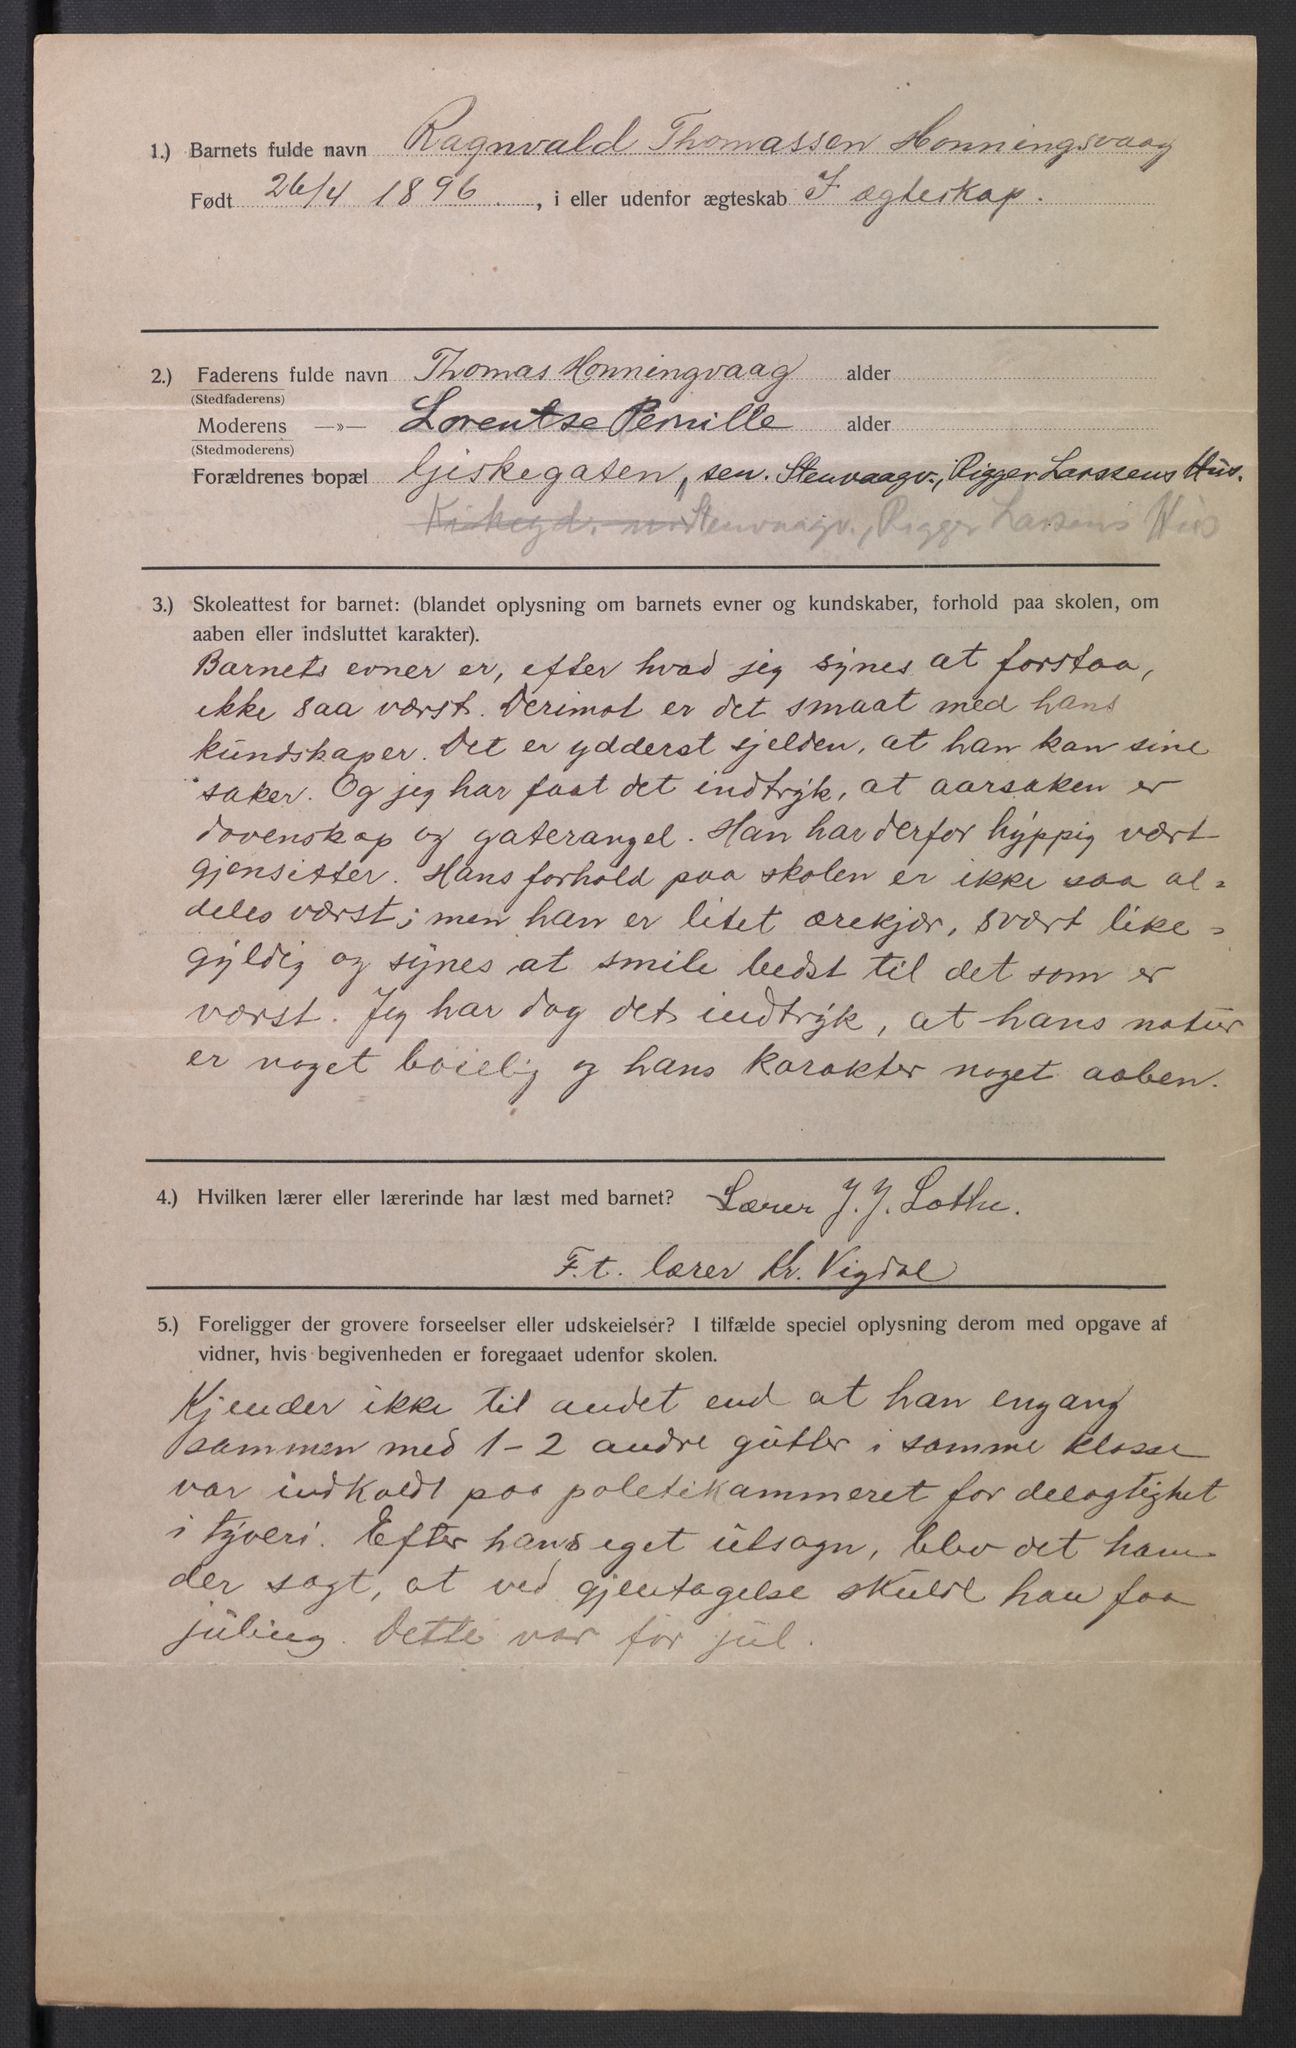 1.) Barnets fulde navn Ragnvald Thomassen Honningsvaag
Født 26/4 1896, i eller udenfor ægteskab I ægteskap.
2.) Faderens fulde navn Thomas Honningvaag alder
(Stedfaderens)
Moderens —»— Lorentse Pernille alder
(Stedmoderens)
Forældrenes bopæl Giskegaten, sen. Stenvaagv., Rigger Larssens Hus.
Stenvaagv., Rigger Larsens Hus
3.) Skoleattest for barnet: (blandet oplysning om barnets evner og kundskaber, forhold paa skolen, om
aaben eller indsluttet karakter).
Barnets evner er, efter hvad jeg synes at forstaa,
ikke saa værst. Derimot er det smaat med hans
kundskaper. Det er ydderst sjelden, at han kan sine
saker. Og jeg har faat det indtryk, at aarsaken er
dovenskap og gaterangel. Han har derfor hyppig vært
gjensitter. Hans forhold paa skolen er ikke saa al-
deles værst; men han er litet ærekjær, svært like-
gyldig og synes at smile bedst til det som er
værst. Jeg har dog det indtryk, at hans natur
er noget bøielig og hans karakter noget aaben.
4.) Hvilken lærer eller lærerinde har læst med barnet? Lærer J. J. Lothe.
F.t. lærer Kr. Vigdal
5.) Foreligger der grovere forseelser eller udskeielser? I tilfælde speciel oplysning derom med opgave af
vidner, hvis begivenheden er foregaaet udenfor skolen.
Kjender ikke til andet end at han engang
sammen med 1-2 andre gutter i samme klasse
var indkaldt paa politikammeret for delagtighet
i tyveri. Efter hans eget utsagn, blev det ham
der sagt, at ved gjentagelse skulde han faa
juling. Dette var før jul.